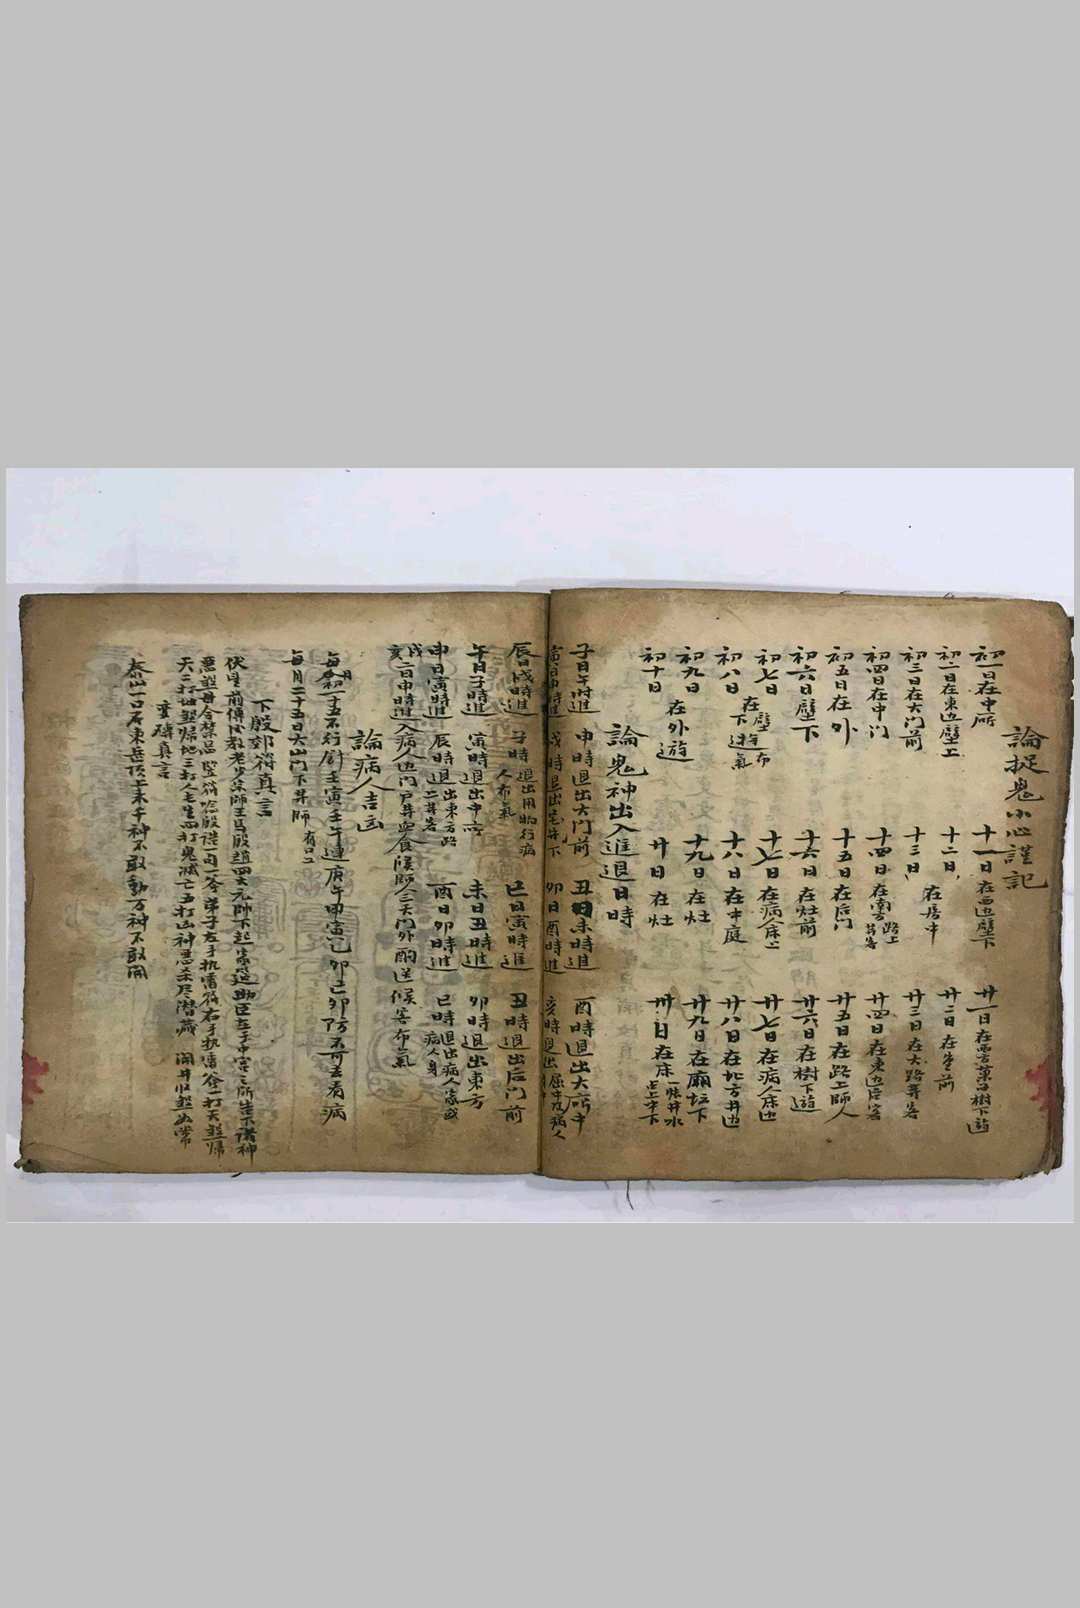 論捉鬼小心謹記
初一日在中所 十一日在西边壁下 廿一日在西方菓子樹下遊
初二日在東边壁上 十二日在房中 廿二日在堂前
初三日在大门前 十三日 廿三日在大路等客
初四日在中门 十四日在南方路上等客 廿四日在東边后害
初五日在外 十五日在后门 廿五日在路上師人
初六日壁下 十六日在灶前 廿六日在樹下遊
初七日在壁下遊布氣 十七日在病人床上 廿七日在病人床边
初八日 十八日在中庭 廿八日在北方井边
初九日在外遊 十九日在灶 廿九日在廟坛下
初十日 廿日在灶 卅日在床
論鬼神出入進退日時
子日午时進 申時退出大门前 丑日未時進 酉時退出大中
寅日申時進 戌時退出宅井下 卯日酉時進 亥時退出病人
辰日戌時進 子時退出用物行病人布氣 巳日寅時進 丑時退出后门前
午日子時進 寅時退出中所 未日丑時進 卯時退出東方
申日寅時進 辰時退出東方路 酉日卯時進 巳時退出病人家或病人身
戌亥二日申時進入病人边门户井 食候師人三天门外酌送候害布氣
論病人吉凶
每月初一十五不行 壬寅壬午連庚午甲寅己卯己卯防不可去看病
每月二十五日大山门下井師有口工
下殷郊符真言
伏望前傳後教老少宗師王馬殷趙四大元帥下起 延助臣左手中宮
惡煞 弟子左手执雷符右手执雷斧一打天煞歸
天二打地煞歸地三打人長生四打鬼滅亡五打凶神惡杀尽潜藏
真言
泰山一口石東岳頂上来千神不敢動万神不敢開